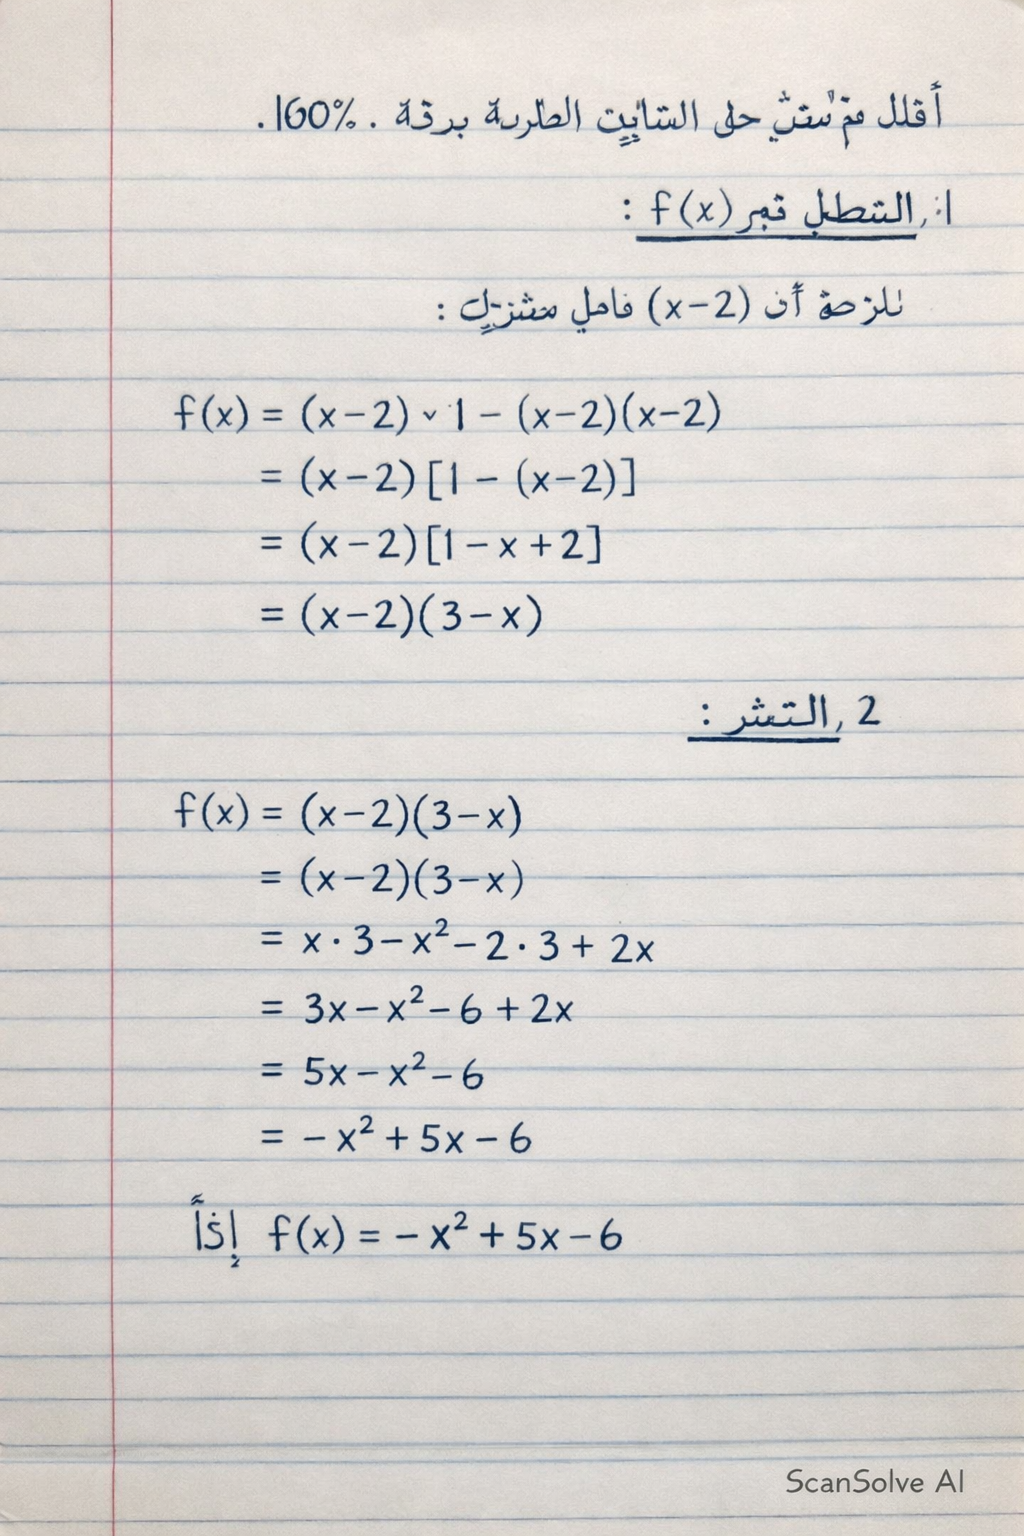 أقلل حل الطربة برقة . 160%.
1, التتطل قبر f(x) :
أن (x-2) فاهل :
f(x) = (x-2) ˅ 1 - (x-2)(x-2)
= (x-2)[1 - (x-2)]
= (x-2)[1-x+2]
= (x-2)(3-x)
2, التشر :
f(x) = (x-2)(3-x)
= (x-2)(3-x)
= x·3-x²-2·3+2x
= 3x-x²-6+2x
= 5x-x²-6
= -x²+5x-6
إذاً f(x) = -x²+5x-6
ScanSolve AI